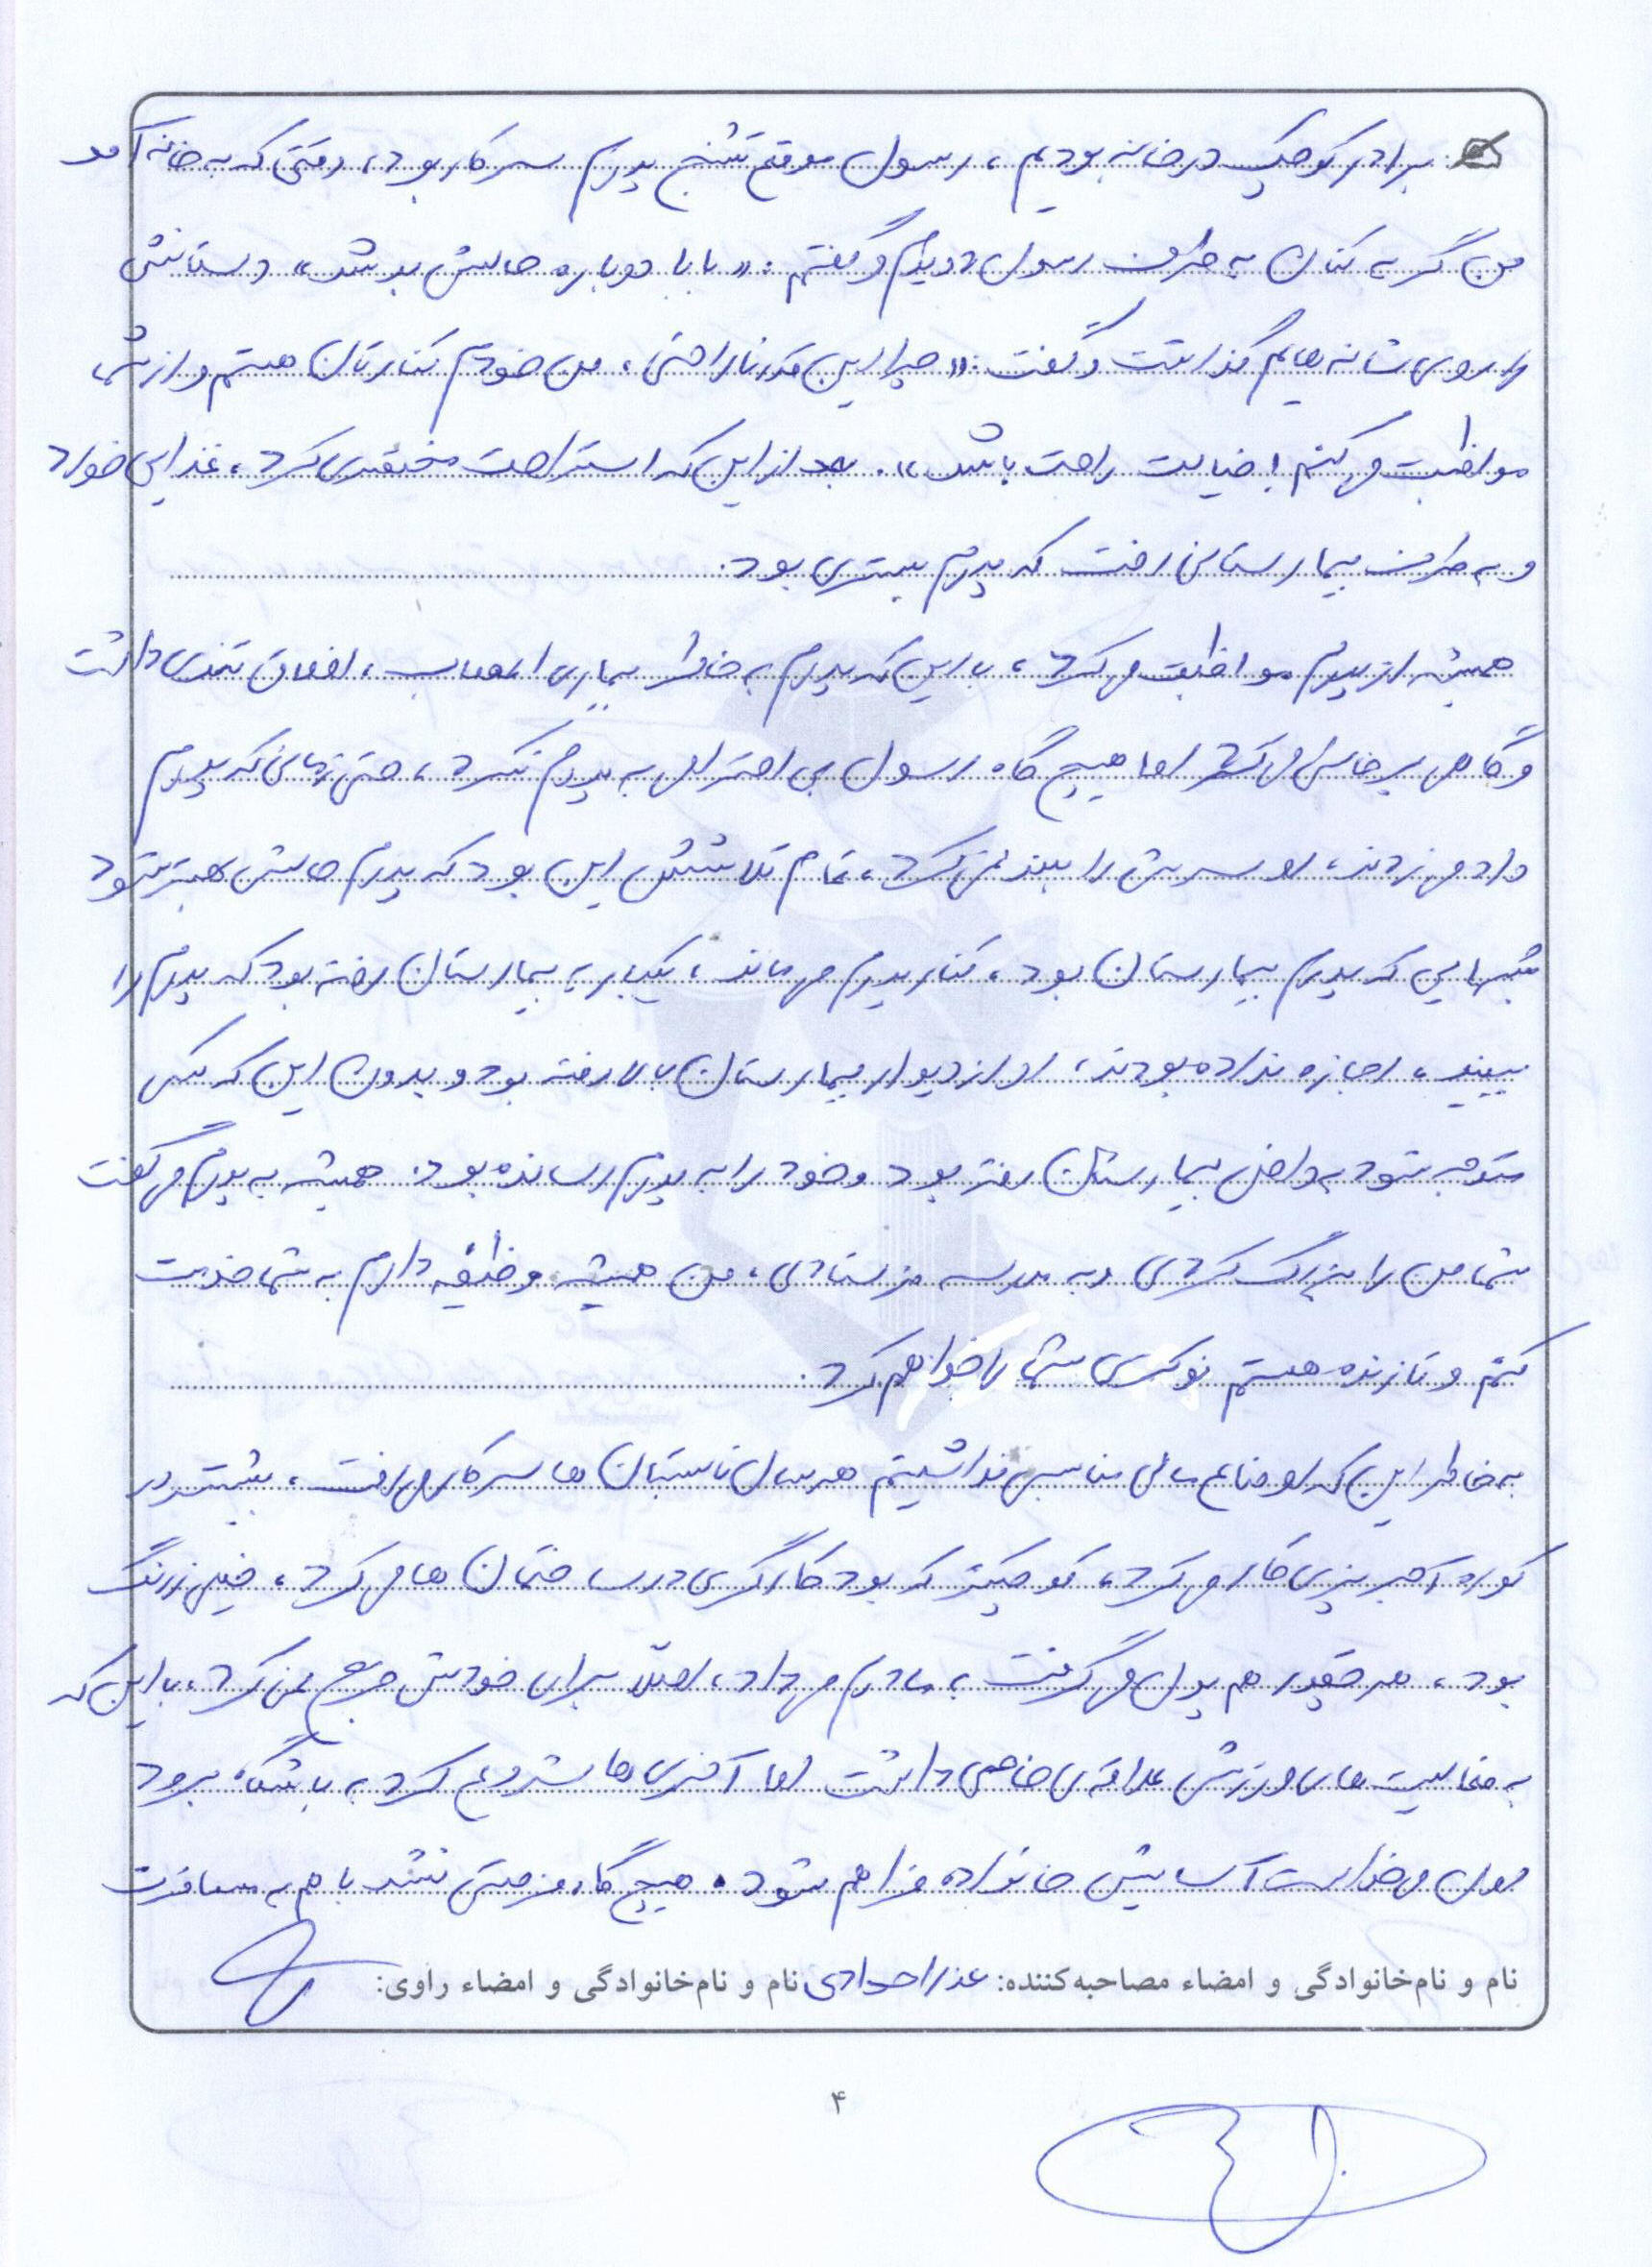 برادر کوچک در خانه بودیم، رسول موقع تشنج پدرم سر کار بود، وقتی که به خانه آمد
من گریه کنان به طرف رسول دویدم و گفتم: «بابا دوباره حالش بد شد» دستانش
را روی شانه هایم گذاشت و گفت: «چرا این قدر ناراحتی، من خودم کنارتان هستم و از شما
مواظبت می کنم! خیالت راحت باشد». بعد از این که استراحت مختصری کرد، غذایی خورد
و به طرف بیمارستانی رفت که پدرم بستری بود.
همیشه از پدرم مواظبت می کرد، با این که پدرم به خاطر بیماری اعصاب، اخلاق تندی داشت
و گاهی پرخاش می کرد اما هیچ گاه رسول بی احترامی به پدرم نکرد، حتی زمانی که پدرم
داد می زدند، او سرش را بلند نمی کرد، تمام تلاشش این بود که پدرم حالش بهتر شود
شبهایی که پدرم بیمارستان بود، کنار پدرم می ماند، یکبار به بیمارستان رفته بود که پدرم را
ببیند، اجازه نداده بودند، او از دیوار بیمارستان بالا رفته بود و بدون این که کسی
متوجه شود به داخل بیمارستان رفته بود و خود را به پدرم رسانده بود. همیشه به پدرم می گفت
شما من را بزرگ کردی و به مدرسه فرستادی، من همیشه وظیفه دارم به شما خدمت
کنم و تا زنده هستم نوکری شما را خواهم کرد.
به خاطر این که اوضاع مالی مناسبی نداشتیم هر سال تابستان ها سر کار می رفت، بیشتر در
کوره آجر پزی کار می کرد، کوچکتر که بود کارگری در ساختمان ها می کرد، خیلی زرنگ
بود، هر چقدر هم پول می گرفت به مادرم می داد، اصلا برای خودش خرج نمی کرد، با این که
به فعالیت های ورزشی علاقه ی خاصی داشت اما آخری ها شروع کرد به باشگاه برود
چون می خواست آسایش خانواده فراهم شود. هیچ گاه فرصتی نشد با هم به مسافرت
نام و نام‌خانوادگی و امضاء مصاحبه‌کننده: عذرا حدادی نام و نام‌خانوادگی و امضاء راوی:
۴